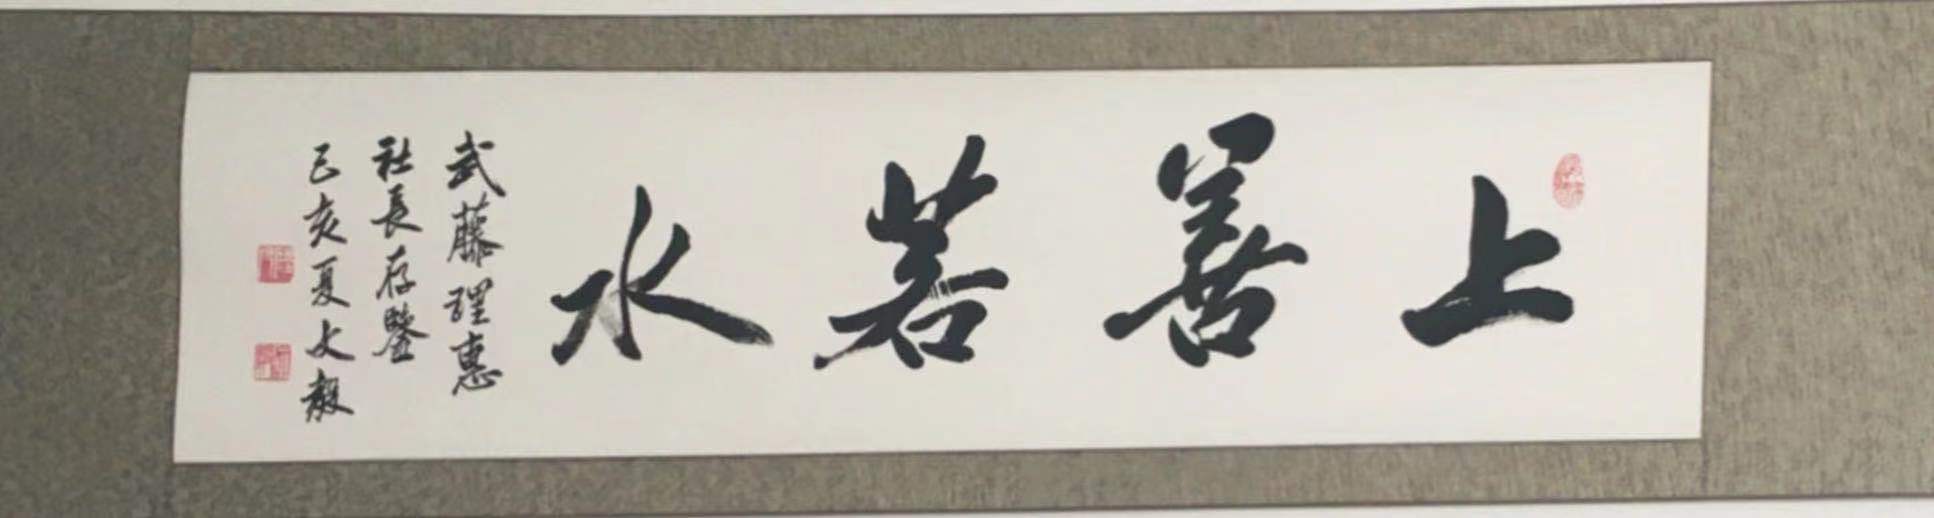 上善若水
武藤理惠
社長存鑒
己亥夏文毅